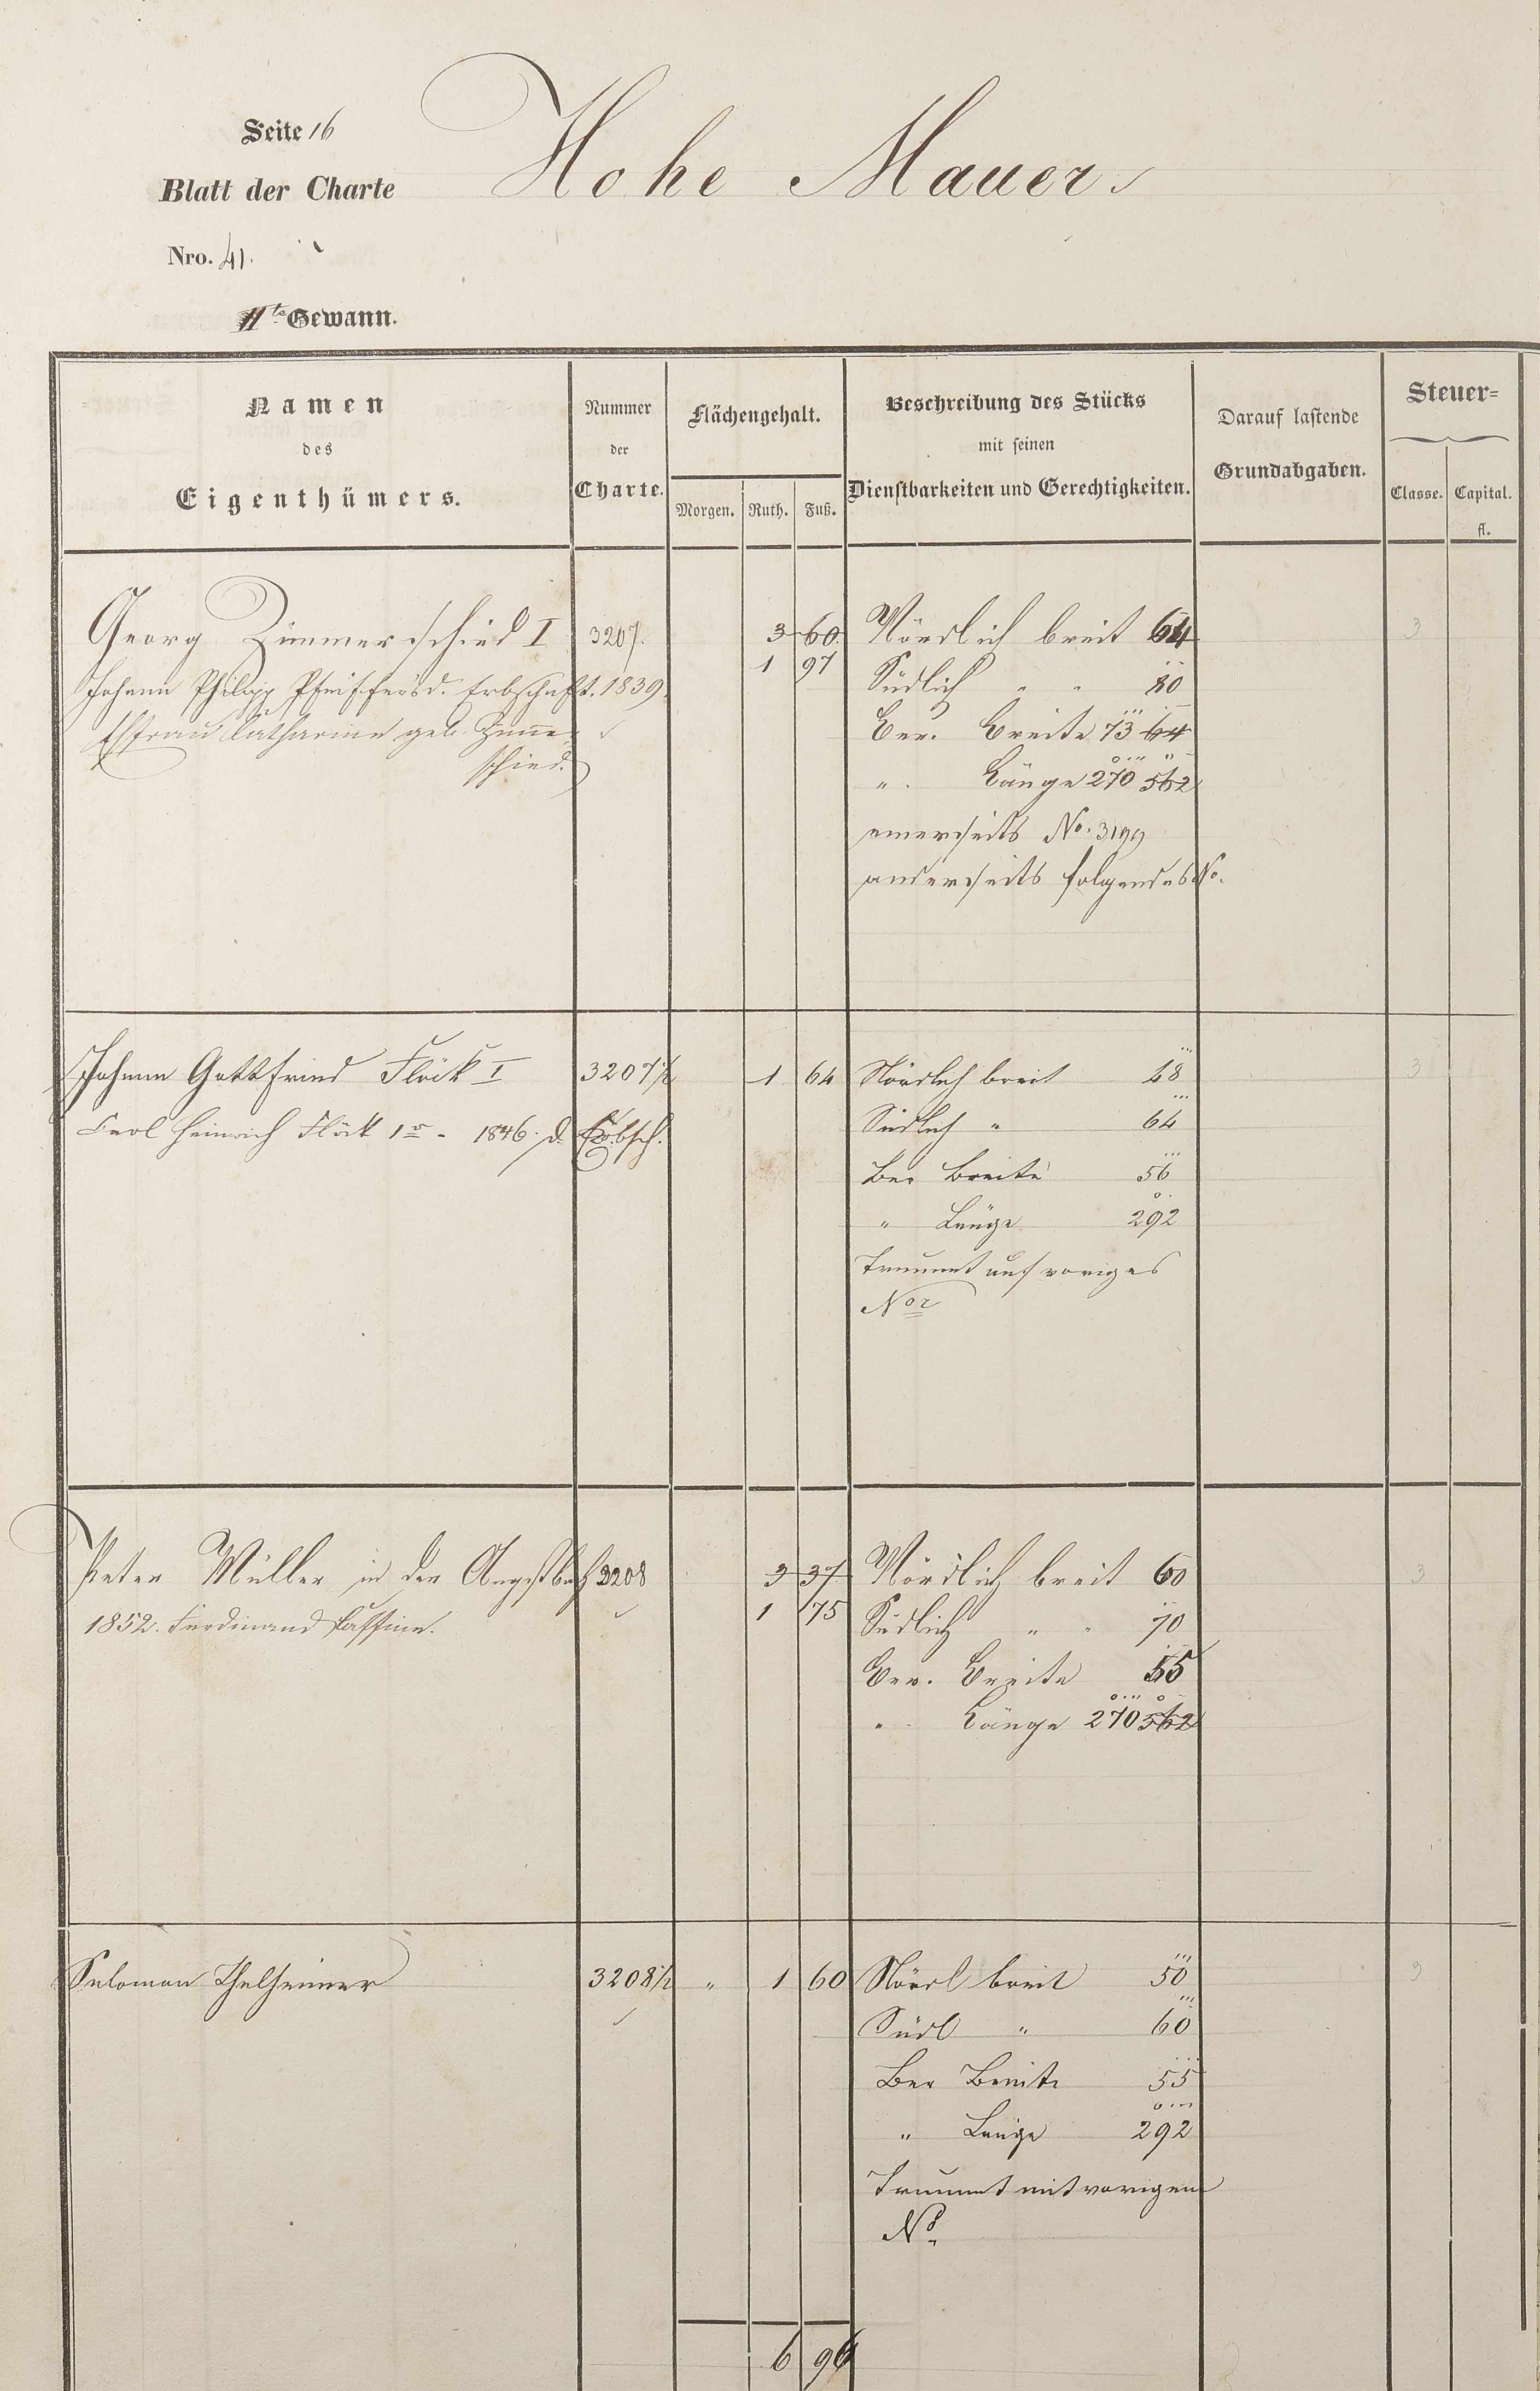 Seite 16
Hohe Mauer
Blatt der Charte
Nro. 41.
IIte Gewann.
Namen
des
Eigenthümers.
Nummer
der
Charte.
Flächengehalt.
Morgen. Ruth. Fuß.
Beschreibung des Stücks
mit seinen
Dienstbarkeiten und Gerechtigkeiten.
Darauf lastende
Grundabgaben.
Steuer=
Classe. Capital.
fl.
Georg Zimmerschied I 3207. 3 60 Nördlich breit 64 3
1 97
Johann Philipp Pfeiffer d. Erbschaft. 1839. Südlich " " 80
Ehefrau Catharine geb. Zimmer Ber. Breite 73 64
schied.
" Länge 270 562
einerseits No. 3199
anderseits folgendes No.
Johann Gottfried Flöck I 3207½ 1 64 Nördlich breit 48 3
Carl Heinrich Flöck 1r - 1846. d. Erbsch. Südlich " 64
Ber Breite 56
" Länge 292
auf voriges
Nor
Peter Müller in der 3208 3 37 Nördlich breit 60 3
1 75
1852. Ferdinand Südlich " " 70
Ber. Breite
" Länge 270 562
Salomon Thalheimer 3208½ " 1 60 Nördl breit 50 3
Südl " 60
Ber Breite 55
" Länge 292
mit vorigem
No.
6 96